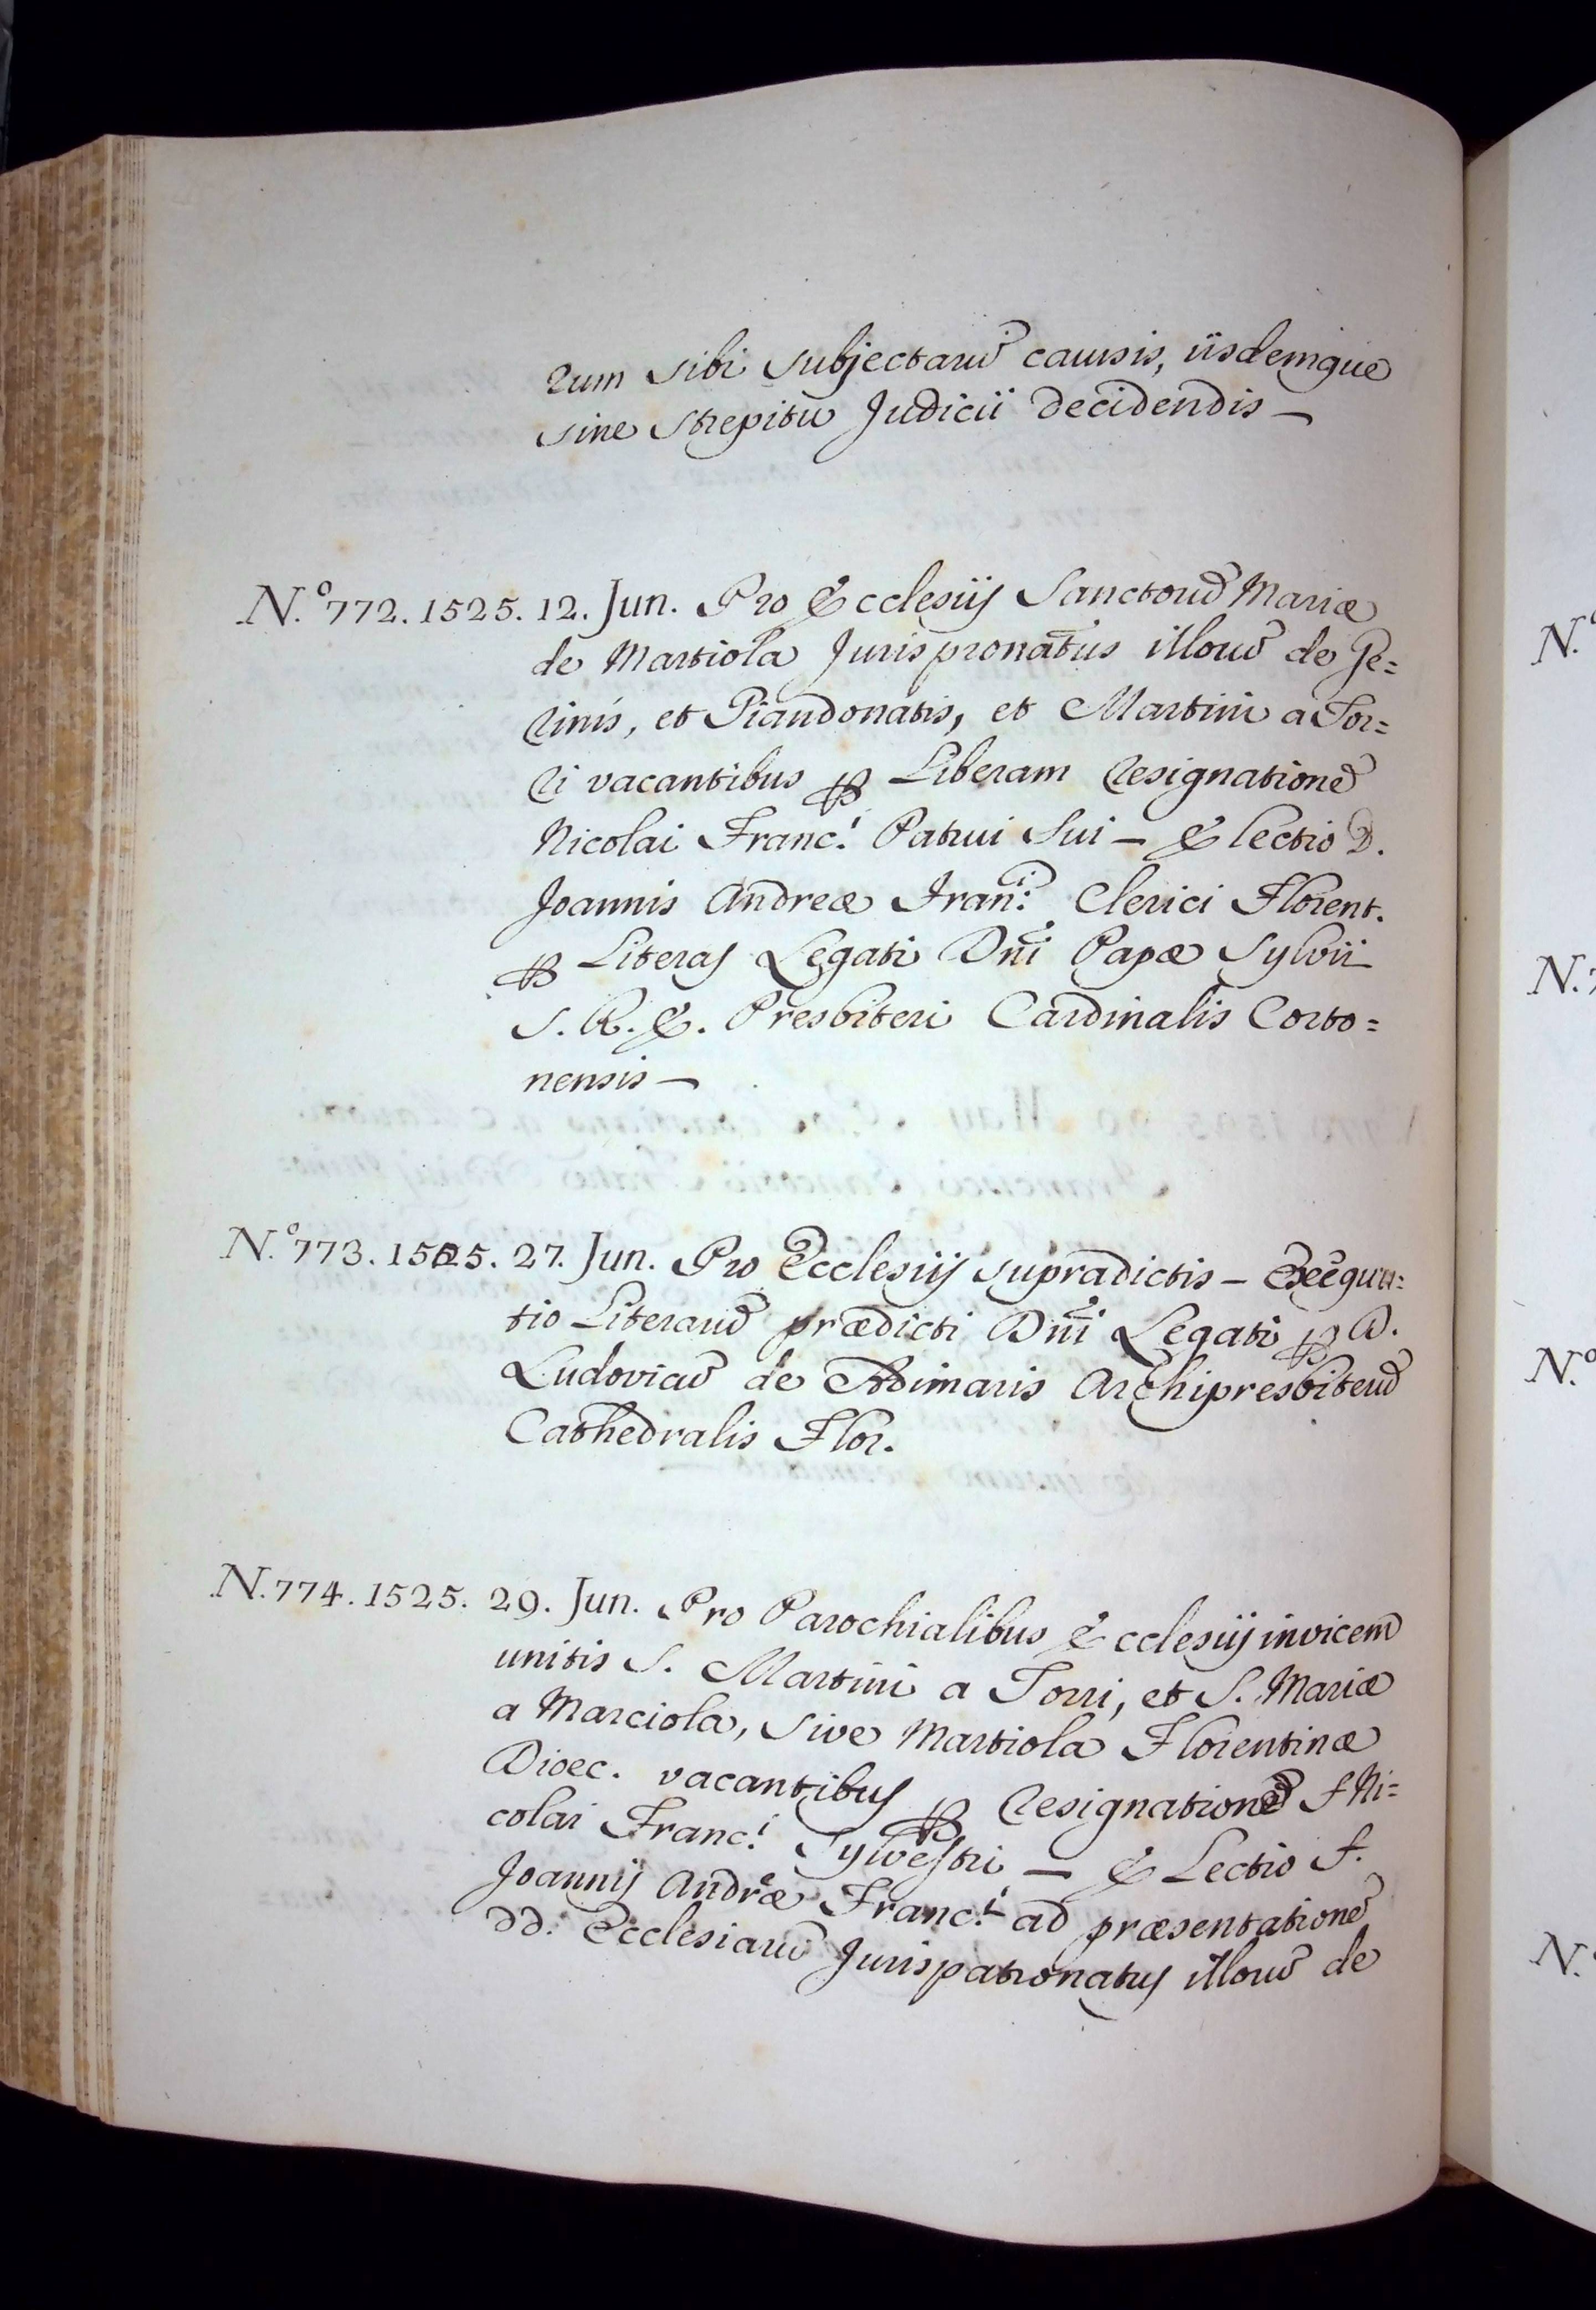 rum sibi subjectarum̄ causis, iisdemque
sine strepitu Judicii decidendis —
N.º 772. 1525. 12. Jun. Pro Ecclesiis Sanctorum̄ Mariæ
de Martiola Jurispronatus illorum̄ de Ge=
rinis, et Piandonatis, et Martini a Tor=
ri vacantibus ꝑ Liberam resignationē
Nicolai Franc.i Patrui sui — Electio D.
Joannis Andreæ Fran.ci Clerici Florent.
ꝑ Literas Legati Dñi Papæ Sylvii
S. R. E. Presbiteri Cardinalis Corto=
nensis —
N.º 773. 1525. 27. Jun. Pro Ecclesiis supradictis — Exequu=
tio Literarum̄ prædicti Dñi Legati ꝑ D.
Ludovicum̄ de Adimaris Archipresbiterum̄
Cathedralis Flor.
N. 774. 1525. 29. Jun. Pro Parochialibus Ecclesiis invicem
unitis S. Martini a Torri, et S. Mariæ
a Marciola, sive Martiola Florentinæ
Dioec. vacantibus ꝑ resignationē f Ni=
colai Franc.i Sylvestri — Electio f.
Joannis Andreæ Franc.i ad præsentationē
dd. Ecclesiarum̄ Jurispatronatus illorum̄ de
N.º
N.
N.º
N.